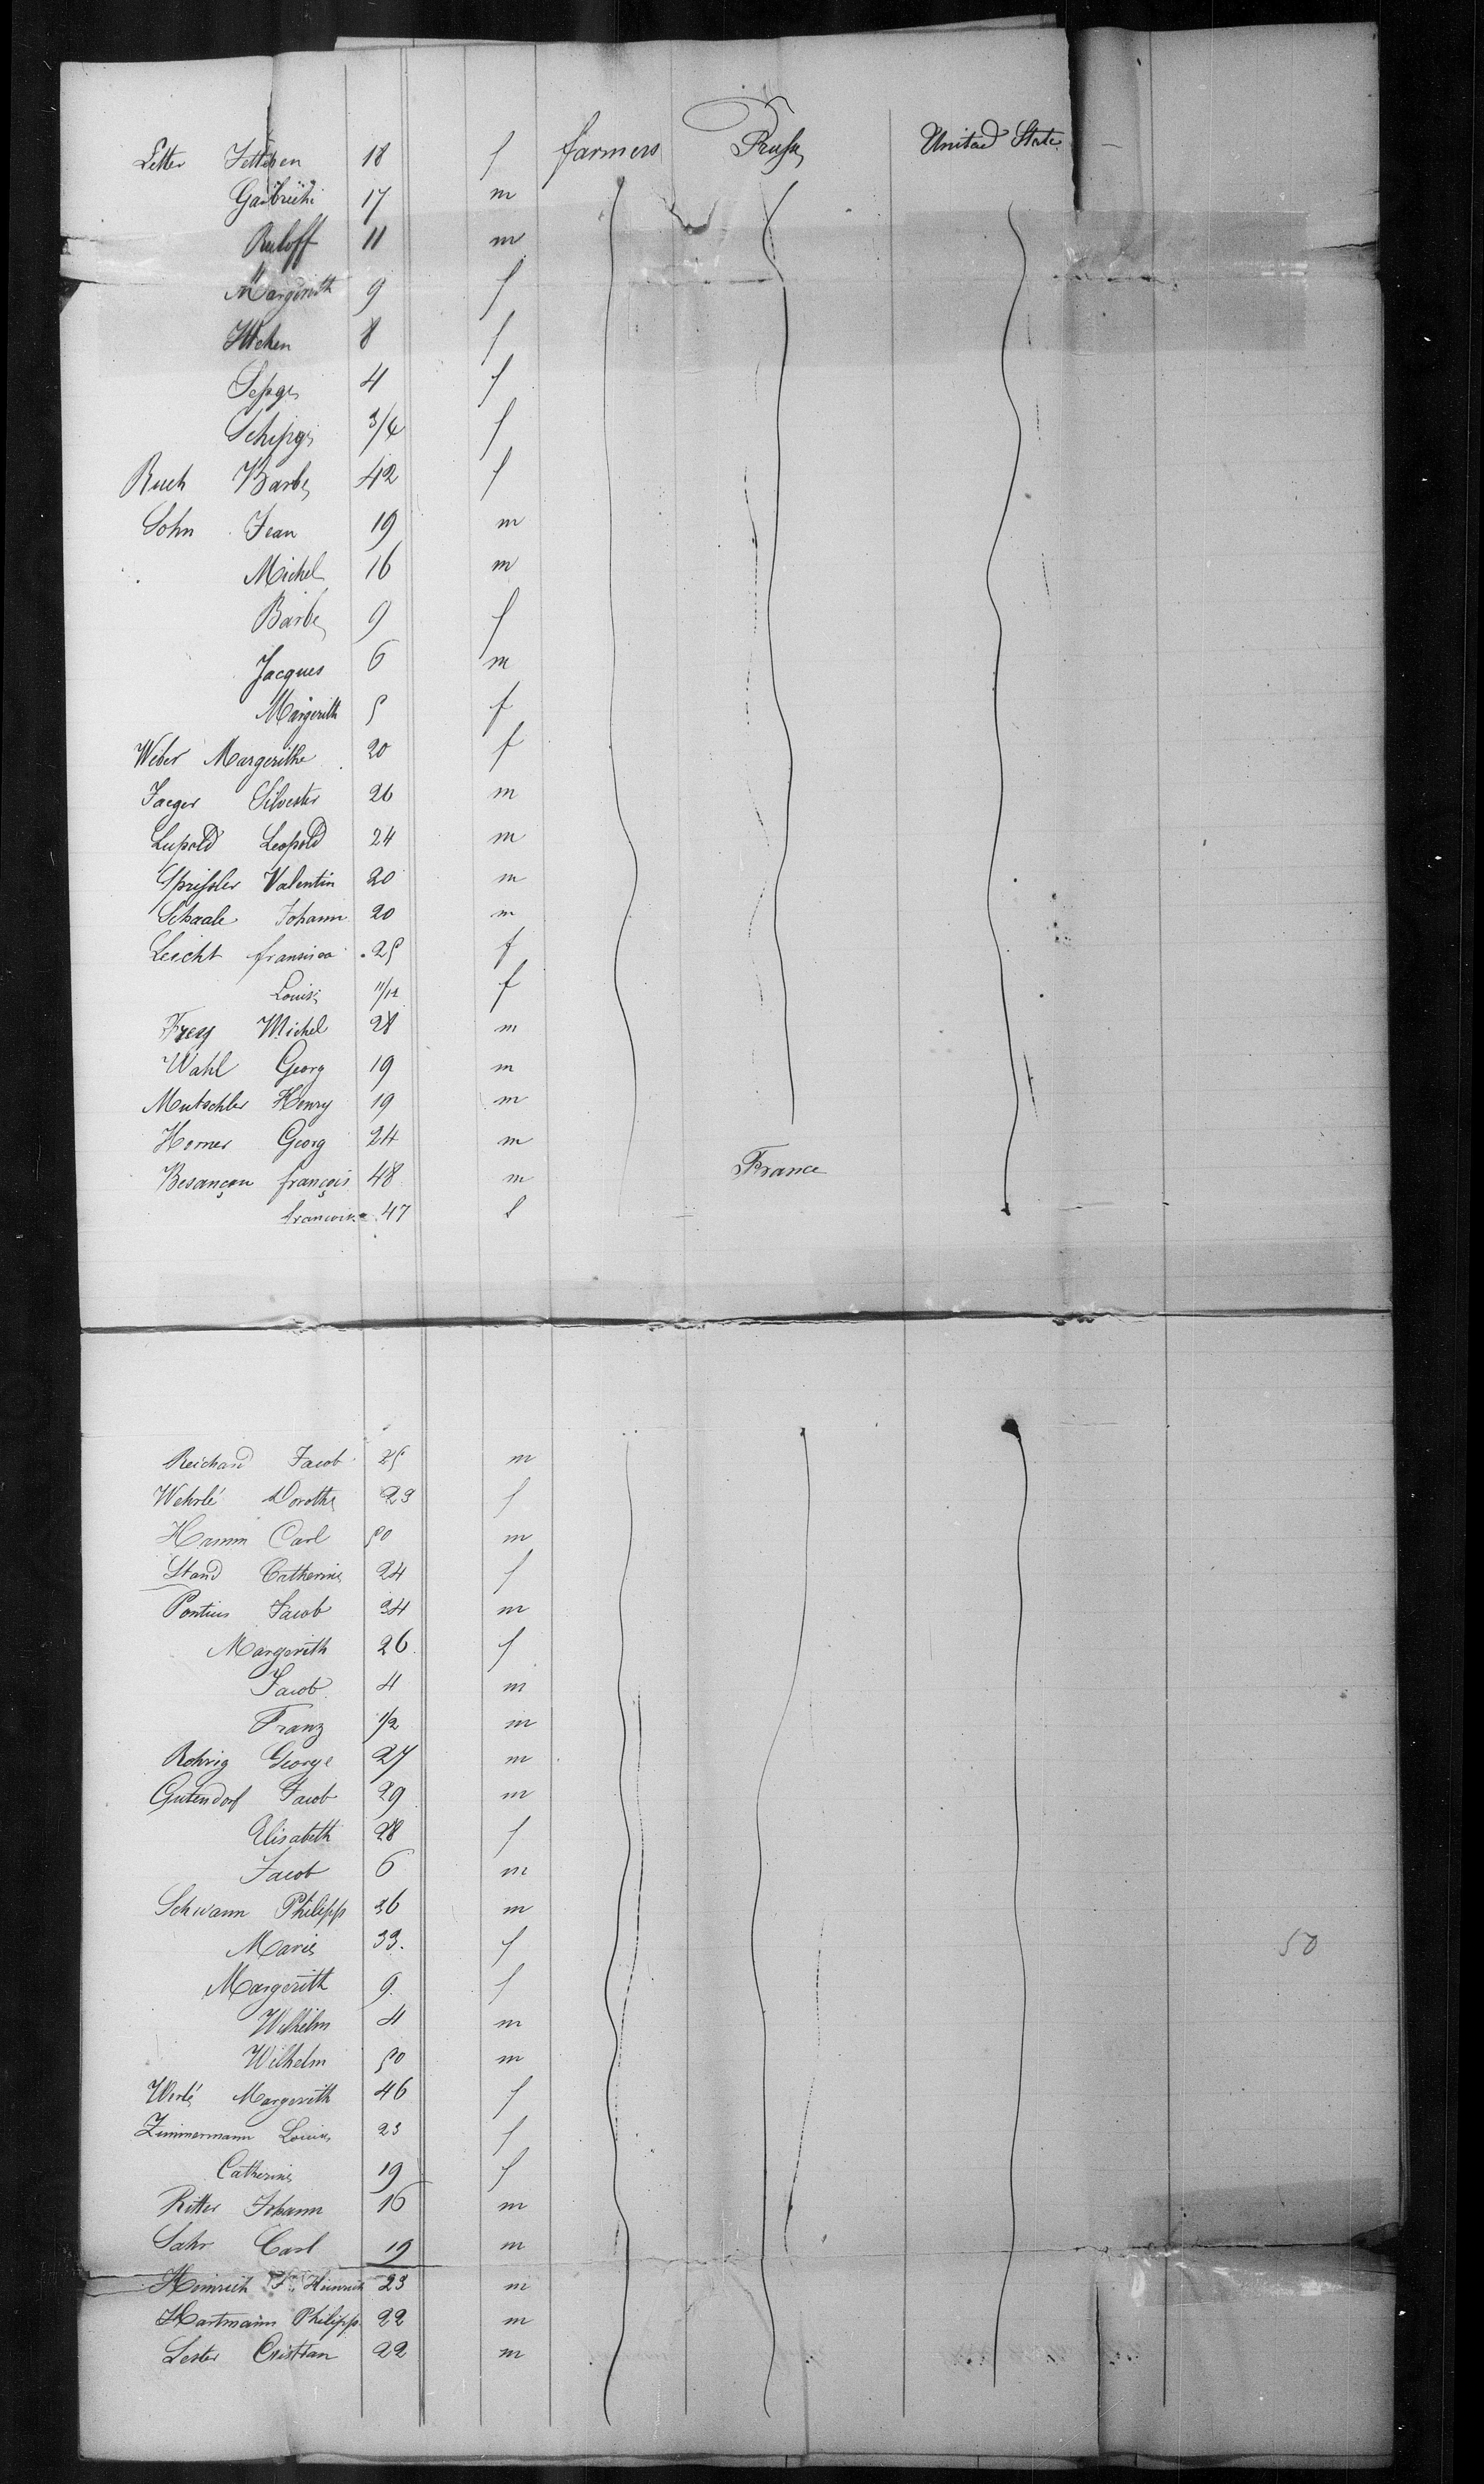 Letter Jettchen 18 f farmers Prusse United State
17 m
Ruloff 11 m
Margereth 9 f
8 f
4 f
3/4 f
Ruch Barbe 42 f
Sohn Jean 19 m
Michel 16 m
Barbe 9 f
Jacques 6 m
Margerith 5 f
Weber Margerithe 20 f
Jaeger Silvester 26 m
Lupold Leopold 24 m
Sprissler Valentin 20 m
Schaale Johann 20 m
Leicht 25 f
Louise 11/12 f
Frey Michel 28 m
Wahl Georg 19 m
Mutschler Henry 19 m
Horner Georg 24 m
Besançon françois 48 m France
francoise 47 f
Reichard Jacob 25 m
Wehrlé Dorothe 23 f
Hamm Carl 50 m
Stand Catherine 24 f
Pontius Jacob 34 m
Margerith 26 f
Jacob 4 m
Franz 1/2 m
Rohrig George 27 m
Gutendorf Jacob 29 m
Elisabeth 28 f
Jacob 6 m
Schwann Philipp 36 m
Marie 33. f 50
Margerith 9. f
Wilhelm 4 m
Wilhelm 50 m
Werlé Margerith 46 f
Zimmermann Louise 23 f
Catherine 19 f
Ritter Johann 16 m
Sahr Carl 19 m
Heinrich Heinrich 23 m
Hartmann Philipp 22 m
Lester Cristian 22 m